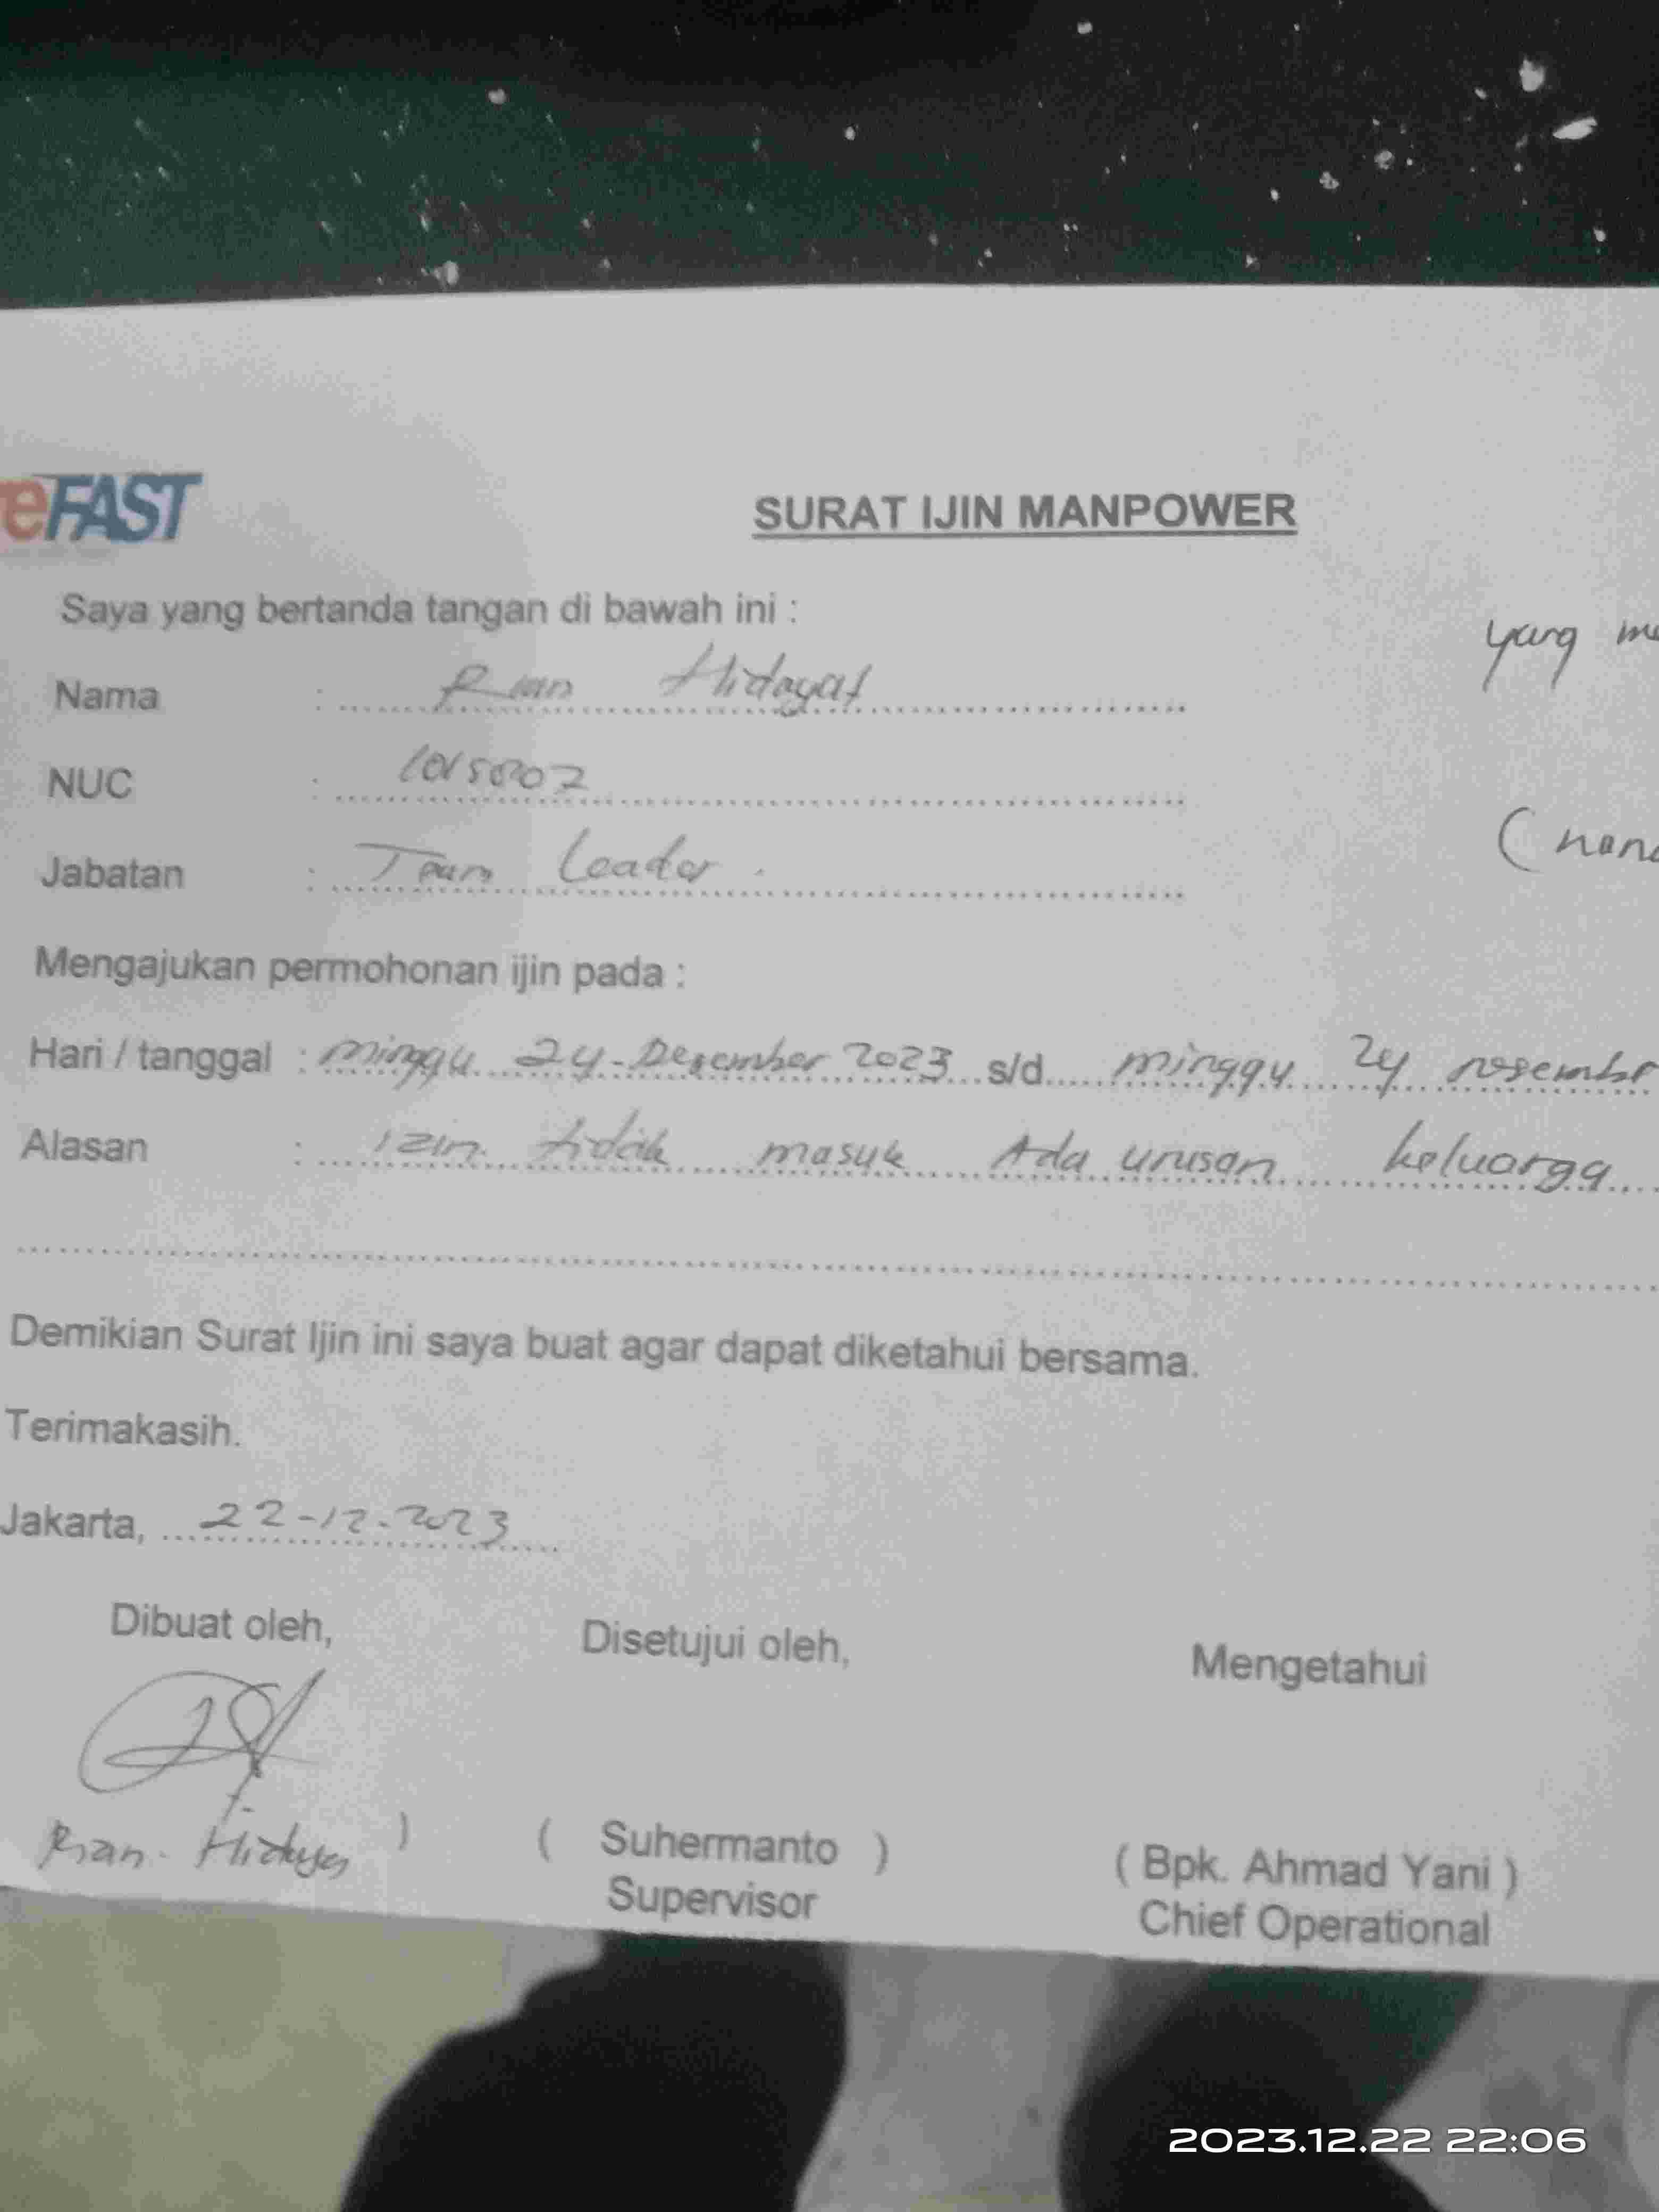 eFAST
SURAT IJIN MANPOWER
Saya yang bertanda tangan di bawah ini :
yang me
Nama : Rian Hidayat
NUC :
( nan
Jabatan : Team Leader .
Mengajukan permohonan ijin pada :
Hari / tanggal : minggu 24 - Desember 2023 s/d minggu 24
Alasan : izin tidak masuk Ada urusan keluarga
Demikian Surat Ijin ini saya buat agar dapat diketahui bersama.
Terimakasih.
Jakarta, 22-12-2023
Dibuat oleh, Disetujui oleh, Mengetahui
Rian Hidaya ) ( Suhermanto ) ( Bpk. Ahmad Yani )
Supervisor Chief Operational
2023.12.22 22:06